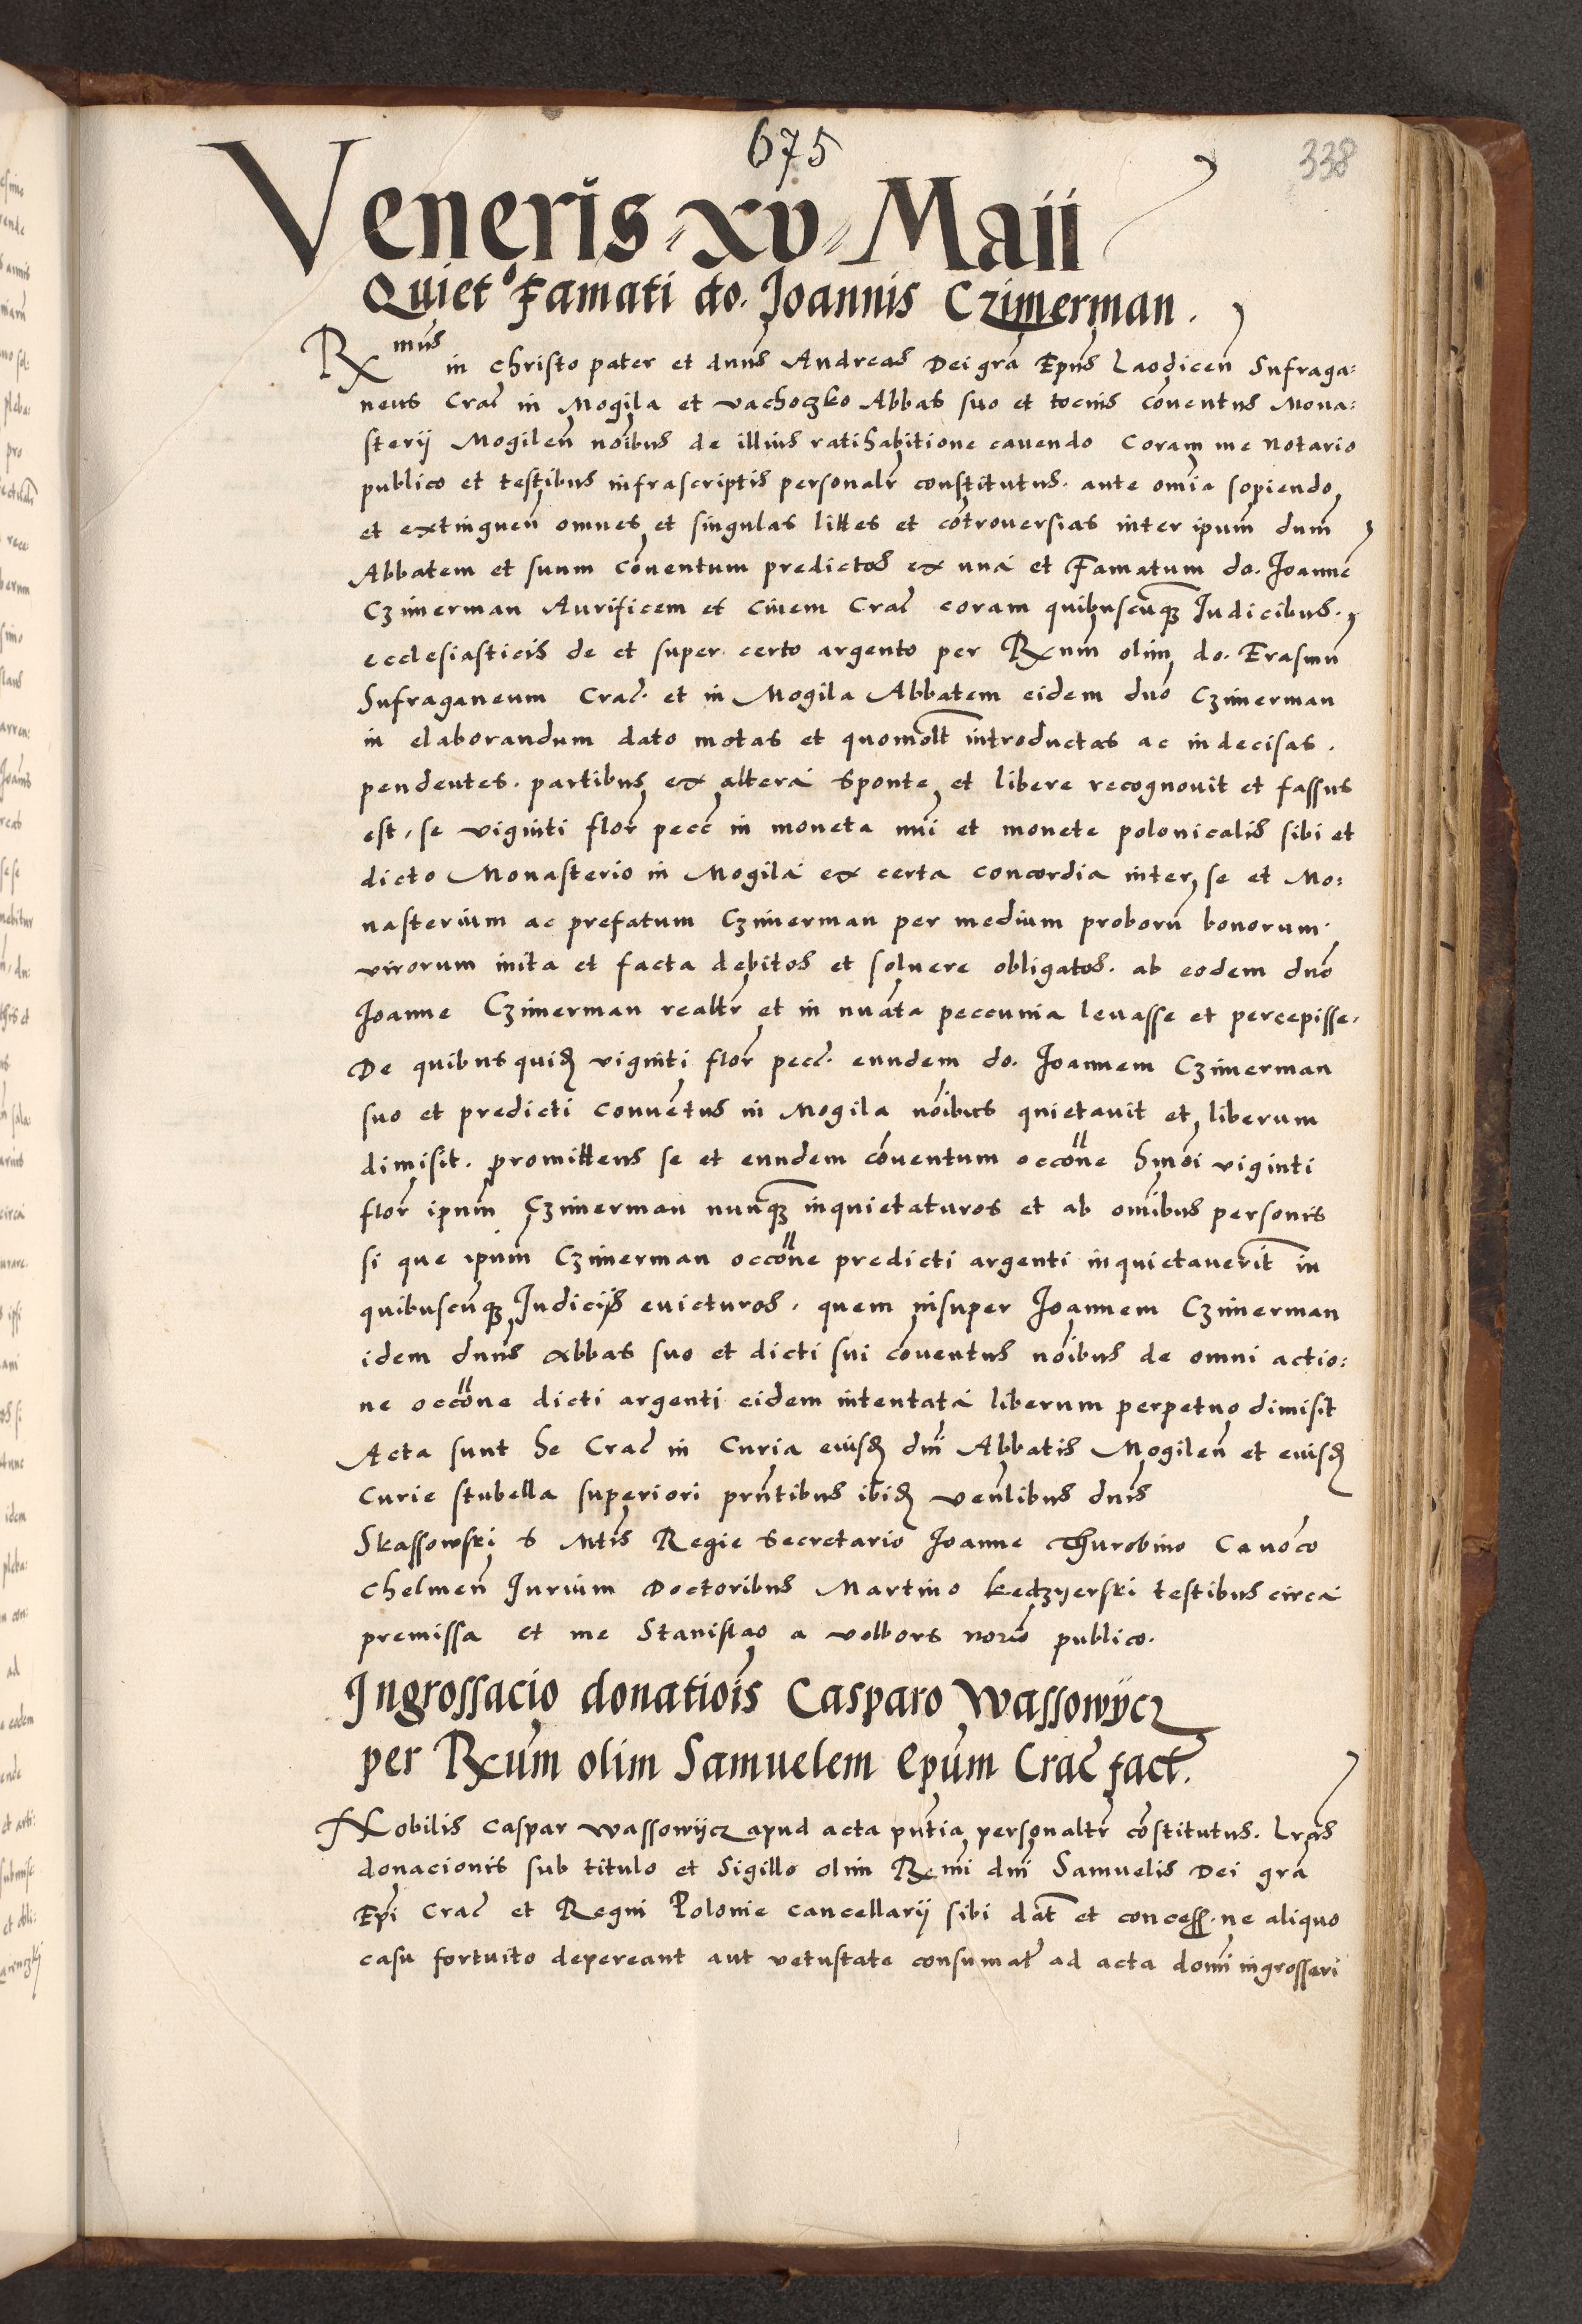 675
338
Veneris xv Maii
Quiet⁰ Famati do. Joannis Czimerman.
Rx mus in christo pater et dnns Andreas Dei gra Epns Laodicen Sufraga:
neus Crac in Mogila et vachoczko Abbas suo et tocius conventus Mona:
sterij Mogilen noibus de illius ratihabitione cavendo Coram me Notario
publico et testibus infrascriptis personalr constitutus. ante omia sopiendo
et extinguen omnes et singulas littes et controversias inter ipum dnm
Abbatem et suum conventum predictos ex una et Famatum do. Joanne
Czimerman Aurificem et Civem Crac coram quibuscunq Judicibus.
ecclesiasticis de et super certo argento per Rxum olim do. Erasmu
Sufraganeum Crac. et in Mogila Abbatem eidem dno Czimerman
in elaborandum dato motas et quomolt introductas ac indecisas.
pendentes. partibus ex altera Sponte et libere recognovit et fassus
est, se viginti flor pecc in moneta nui et monete polonicalis sibi et
dicto Monasterio in Mogila ex certa concordia inter se et Mo:
nasterium ac prefatum Czimerman per medium proboru bonorum.
virorum inita et facta debitos et solvere obligatos. ab eodem dno
Joanne Czimerman realtr et in nuata peccunia levasse et percepisse.
De quibus quidq viginti flor pecc. eundem do. Joannem Czimerman
suo et predicti conventus in Mogila noibus quietavit et liberum
dimisit. promittens se et eundem conventum occone hmoi viginti
flor ipum Czimerman nunq inquietaturos et ab omibus personis
si que ipum Czimerman occone predicti argenti inquietaverit in
quibuscunq Judicijs evicturos. quem insuper Joannem Czimerman
idem dnns Abbas suo et dicti sui conventus noibus de omni actio:
ne occone dicti argenti eidem intentata liberum perpetuo dimisit
Acta sunt he Crac in Curia eiusd dni Abbatis Mogilen et eiusd
Curie stubella superiori prntibus ibid venlibus dnis
Skassowski S Mtis Regie Secretario Joanne Thurobino Canoco
Chelmen Jurium Doctoribus Martino Kedzyerski testibus circa
premissa et me Stanislao a Volbors norio publico.
Ingrossacio donatiois Casparo Wassowycz
per Rxum olim Samuelem Epum Crac fact.
Nobilis Caspar Wassowycz apud acta pntia personaltr constitutus. Lras
donacionis sub titulo et Sigillo olim Rxmi dni Samuelis Dei gra
Epi Crac et Regni Polonie Cancellarij sibi dat et concess. ne aliquo
casu fortuito depereant aut vetustate consumatr ad acta domi ingrosseri